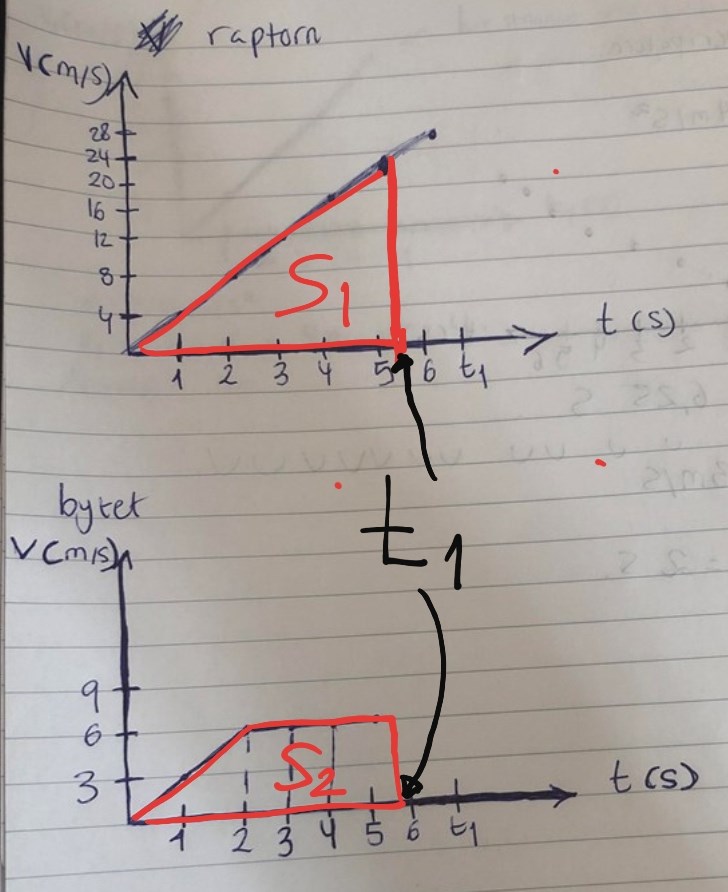 raptorn
V(m/s)
28
24
20
16
12
8
4
S1
t (s)
1 2 3 4 5 6 t1
t1
bytet
V(m/s)
9
6
3
S2
t (s)
1 2 3 4 5 6 t1